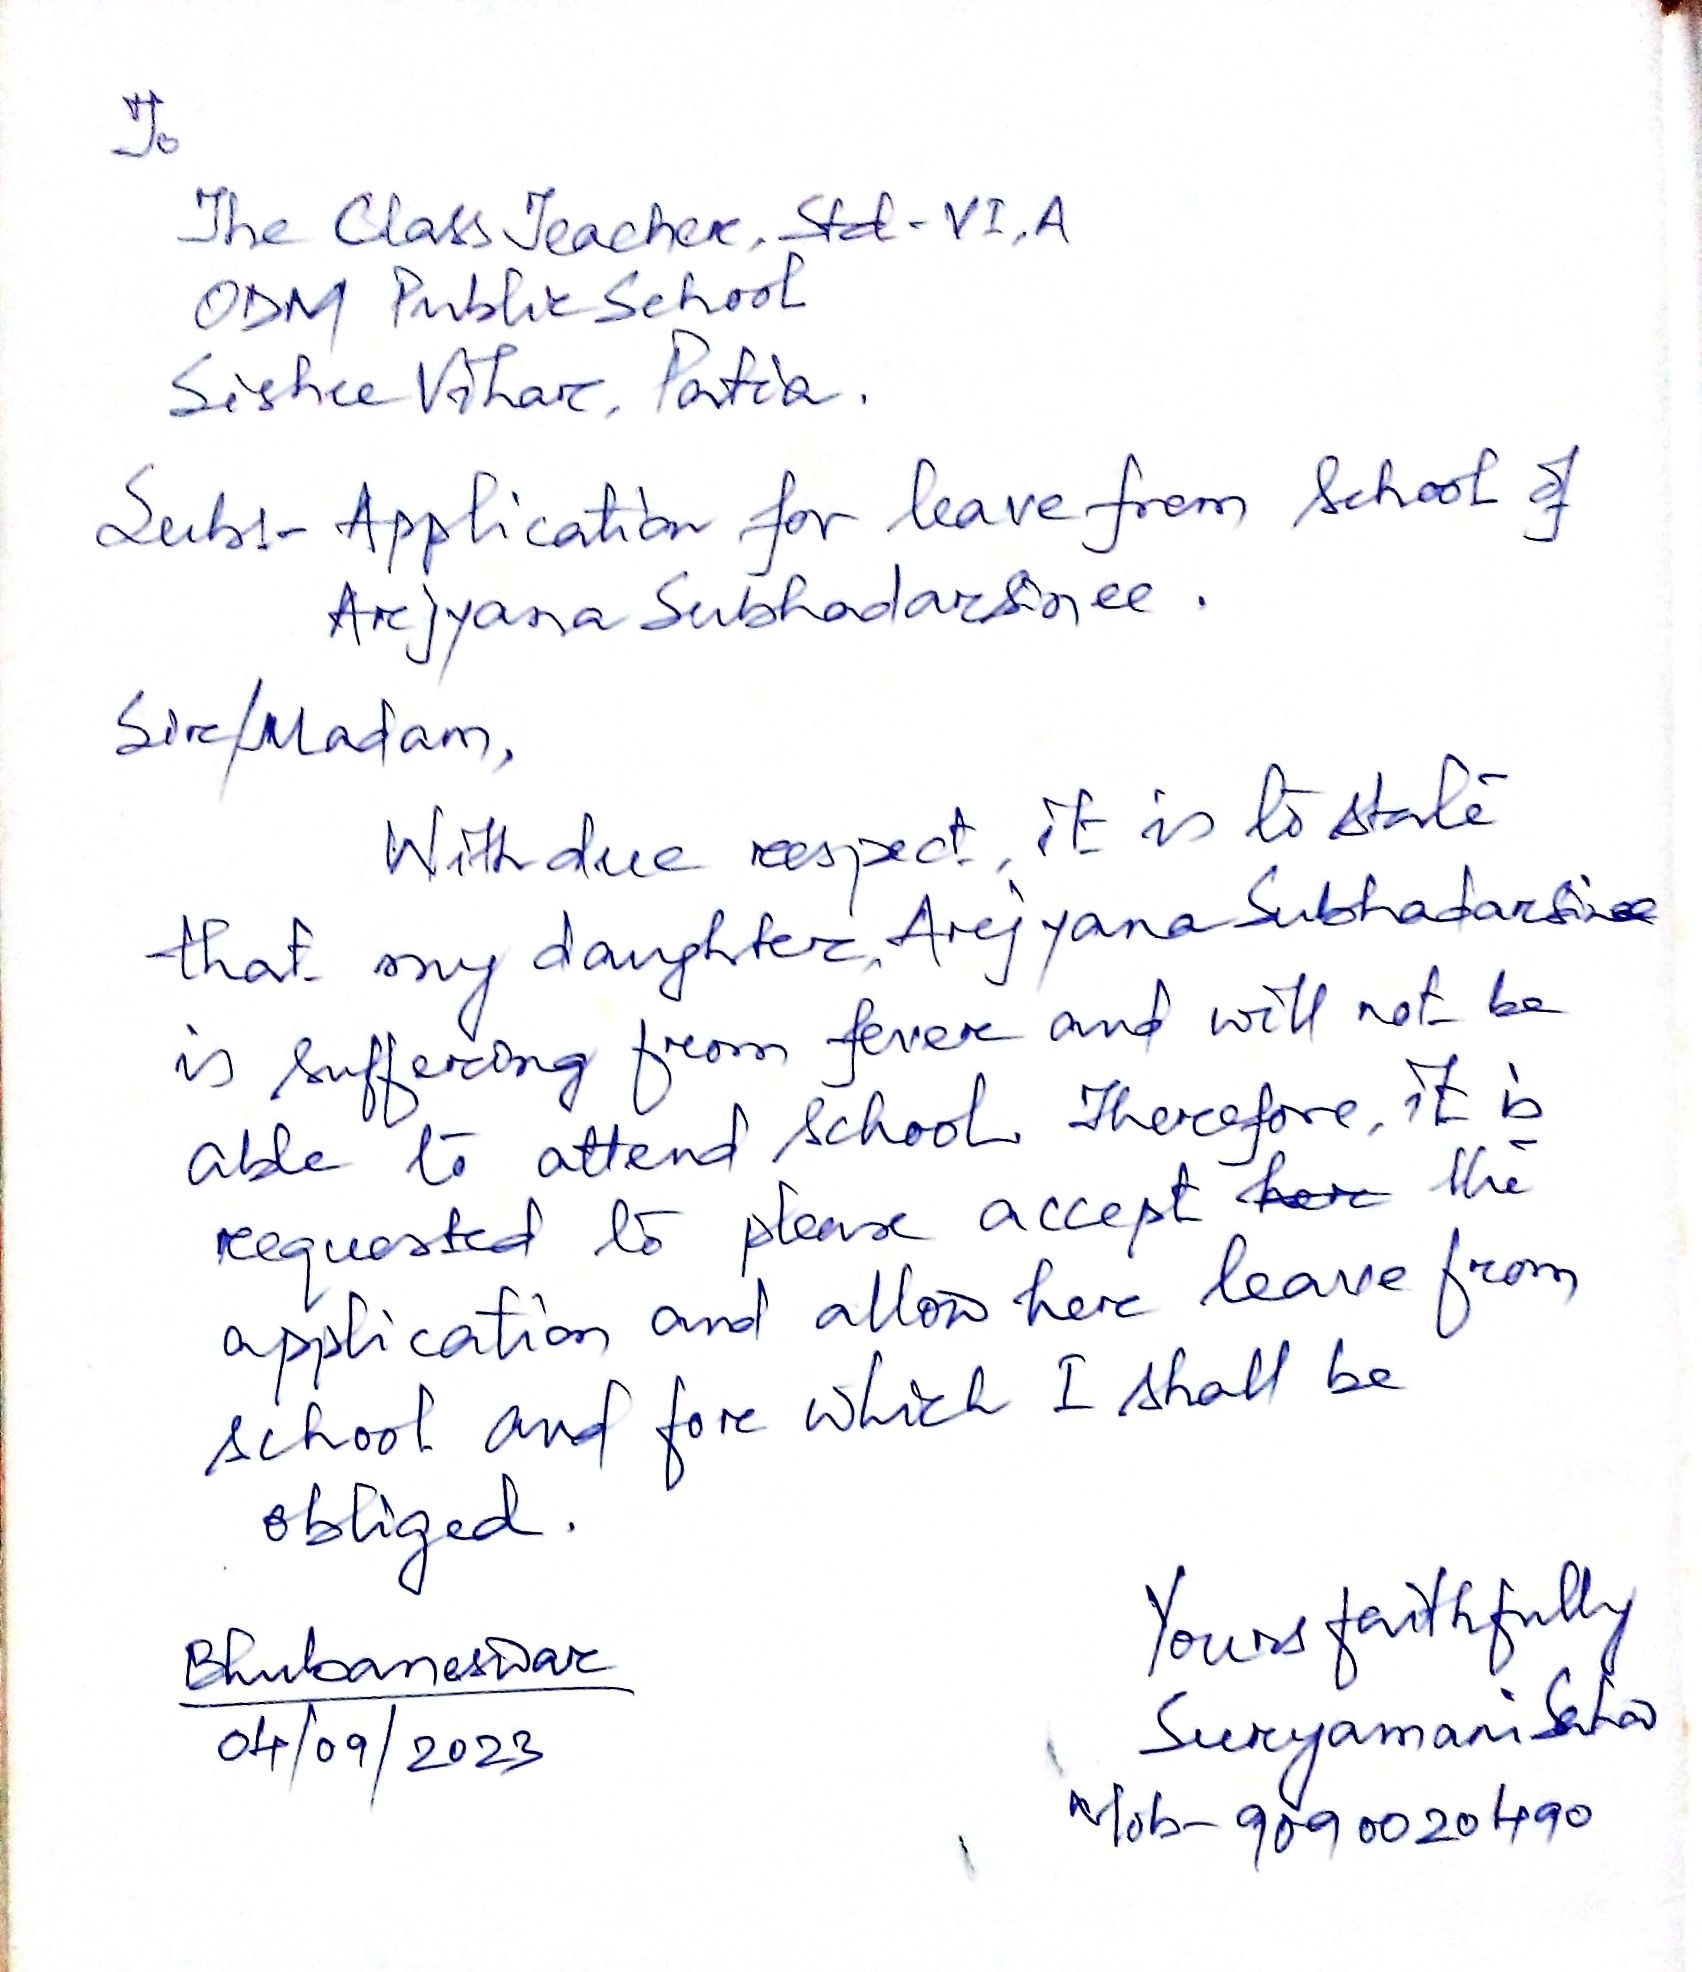 To
The Class Teacher, Std-VI, A
ODM Public School
Sishu Vihar, Patia.
Sub:- Application for leave from School of
Arjyana Subhadarsinee.
Sir/Madam,
With due respect, it is to state
that my daughter, Arjyana Subhadarsinee
is suffering from fever and will not be
able to attend school. Therefore, it is
requested to please accept her the
application and allow her leave from
school and for which I shall be
obliged.
Bhubaneswar
04/09/2023
Yours faithfully
Suryamani Sahoo
Mob- 9090020490